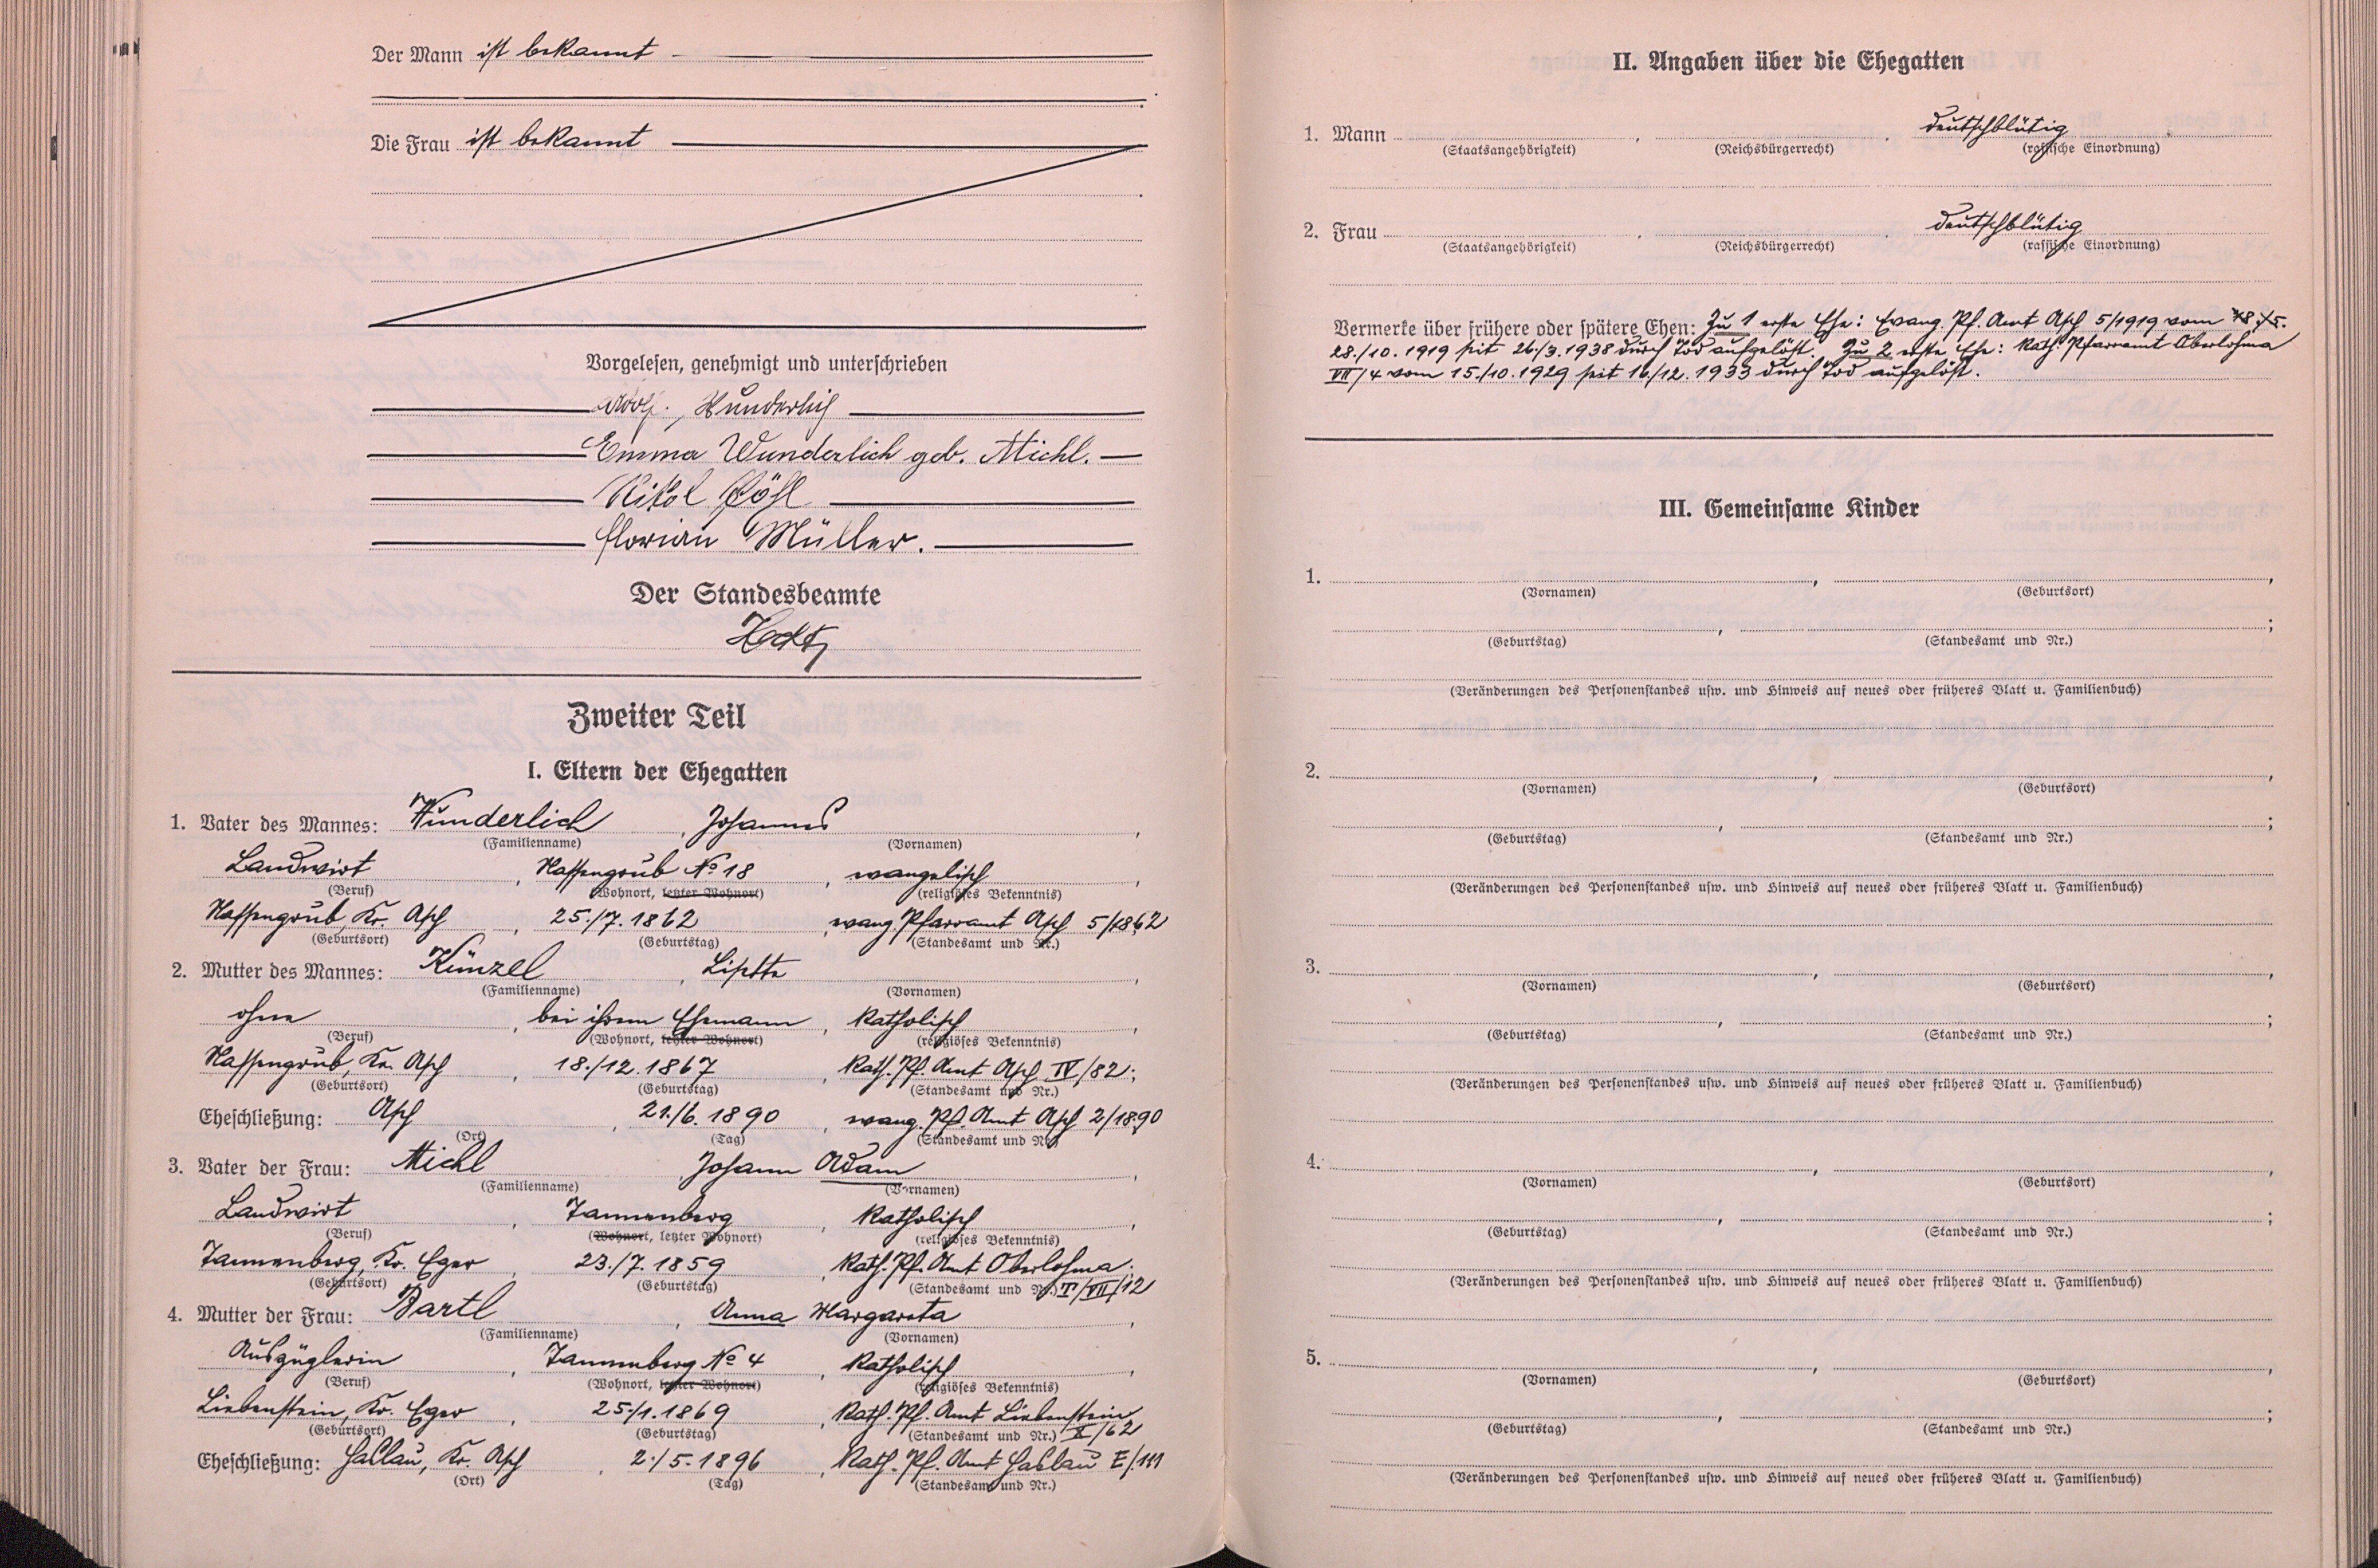 Der Mann ist bekannt
Die Frau ist bekannt
Vorgelesen, genehmigt und unterschrieben
Adolf Wunderlich
Emma Wunderlich geb. Michl.
Florian Müller.
Der Standesbeamte
Zweiter Teil
I. Eltern der Ehegatten
1. Vater des Mannes: Wunderlich, Johannes,
(Familienname) (Vornamen)
Landwirt, Nassengrub No 18, evangelisch,
(Beruf) (Wohnort, letzter Wohnort) (religiöses Bekenntnis)
Nassengrub, Kr. Asch, 25./7.1862, evang. Pfarramt Asch 5/1862
(Geburtsort) (Geburtstag) (Standesamt und Nr.)
2. Mutter des Mannes: Künzel, Lisette,
(Familienname) (Vornamen)
ohne, bei ihrem Ehemann, katholisch,
(Beruf) (Wohnort, letzter Wohnort) (religiöses Bekenntnis)
Nassengrub, Kr. Asch, 18./12.1867, Kath. Pf. Amt Asch IV/82;
(Geburtsort) (Geburtstag) (Standesamt und Nr.)
Eheschließung: Asch, 21./6.1890, evang. Pf. Amt Asch 2/1890
(Ort) (Tag) (Standesamt und Nr.)
3. Vater der Frau: Michl, Johann Adam,
(Familienname) (Vornamen)
Landwirt, Tannenberg, katholisch,
(Beruf) (Wohnort, letzter Wohnort) (religiöses Bekenntnis)
Tannenberg, Kr. Eger, 23./7.1859, Kath. Pf. Amt Oberlohma.
(Geburtsort) (Geburtstag) (Standesamt und Nr.) T/VII/12
4. Mutter der Frau: Bartl, Anna Margareta,
(Familienname) (Vornamen)
Auszüglerin, Tannenberg No 4, katholisch,
(Beruf) (Wohnort, letzter Wohnort) (religiöses Bekenntnis)
Liebenstein, Kr. Eger, 25./1.1869, Kath. Pf. Amt Liebenstein
(Geburtsort) (Geburtstag) (Standesamt und Nr.) X/62
Eheschließung: Haslau, Kr. Asch, 2./5.1896, Kath. Pf. Amt Haslau E/111
(Ort) (Tag) (Standesamt und Nr.)
II. Angaben über die Ehegatten
1. Mann , . deutschblütig
(Staatsangehörigkeit) (Reichsbürgerrecht) (rassische Einordnung)
2. Frau , . deutschblütig
(Staatsangehörigkeit) (Reichsbürgerrecht) (rassische Einordnung)
Vermerke über frühere oder spätere Ehen: Zu 1 erste Ehe: Evang. Pf. Amt Asch 5/1919 vom
28./10.1919 seit 26./3.1938 durch Tod aufgelöst. Zu 2 erste Ehe: Kath. Pfarramt Oberlohma
VII/4 vom 15./10.1929 seit 16./12.1933 durch Tod aufgelöst.
III. Gemeinsame Kinder
1. , ,
(Vornamen) (Geburtsort)
, ;
(Geburtstag) (Standesamt und Nr.)
(Veränderungen des Personenstandes usw. und Hinweis auf neues oder früheres Blatt u. Familienbuch)
2. , ,
(Vornamen) (Geburtsort)
, ;
(Geburtstag) (Standesamt und Nr.)
(Veränderungen des Personenstandes usw. und Hinweis auf neues oder früheres Blatt u. Familienbuch)
3. , ,
(Vornamen) (Geburtsort)
, ;
(Geburtstag) (Standesamt und Nr.)
(Veränderungen des Personenstandes usw. und Hinweis auf neues oder früheres Blatt u. Familienbuch)
4. , ,
(Vornamen) (Geburtsort)
, ;
(Geburtstag) (Standesamt und Nr.)
(Veränderungen des Personenstandes usw. und Hinweis auf neues oder früheres Blatt u. Familienbuch)
5. , ,
(Vornamen) (Geburtsort)
, ;
(Geburtstag) (Standesamt und Nr.)
(Veränderungen des Personenstandes usw. und Hinweis auf neues oder früheres Blatt u. Familienbuch)